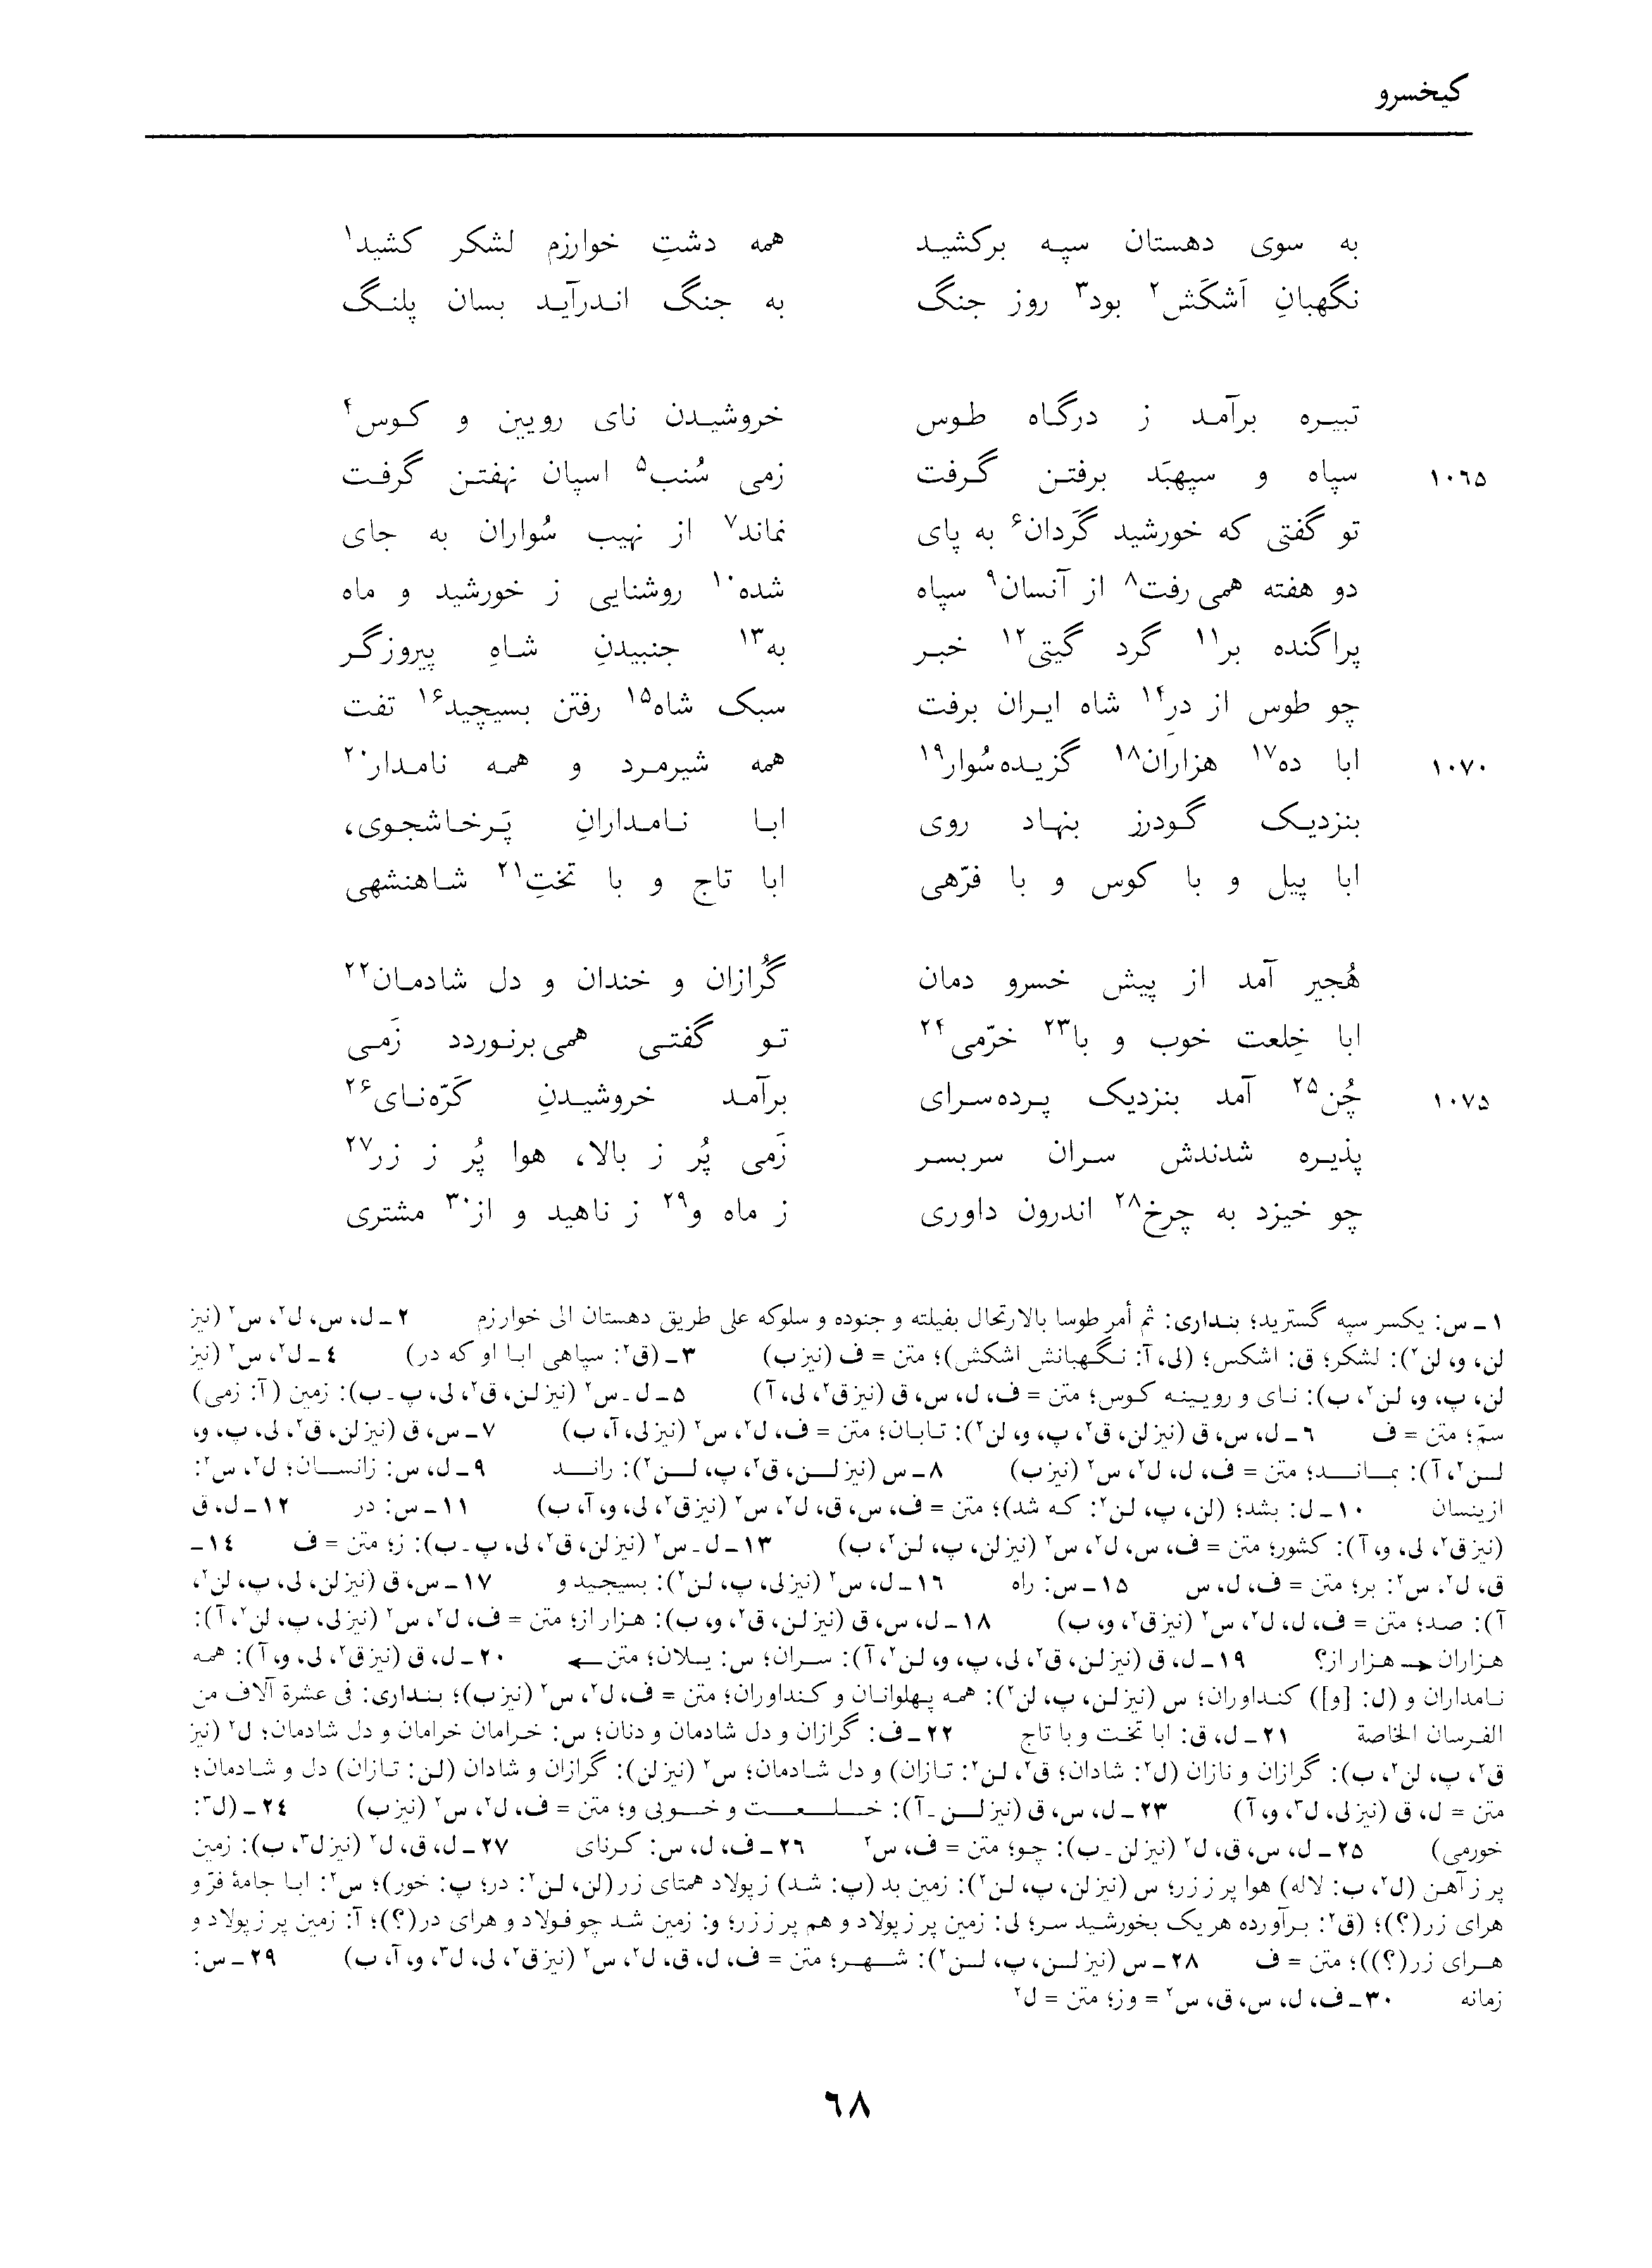 کیخسرو
به سوی دهستان سپه برکشید همه دشتِ خوارزم لشکر کشید۱
نگهبانِ اَشکَش۲ بود۳ روز جنگ به جنگ اندرآید بسان پلنگ
تبیره برآمد ز درگاه طوس خروشیدن نای رویین و کوس۴
۱۰۶۵ سپاه و سپهبَد برفتن گرفت زمی سُنب۵ اسپان نهفتن گرفت
تو گفتی که خورشید گَردان۶ به پای نماند۷ از نهیب سُواران به جای
دو هفته همی‌رفت۸ از آنسان۹ سپاه شده۱۰ روشنایی ز خورشید و ماه
پراگنده بر۱۱ گرد گیتی۱۲ خبر به۱۳ جنبیدنِ شاهِ پیروزگر
چو طوس از درِ۱۴ شاه ایران برفت سبک شاه۱۵ رفتن بسیچید۱۶ تفت
۱۰۷۰ ابا ده۱۷ هزاران۱۸ گزیده‌سُوار۱۹ همه شیرمرد و همه نامدار۲۰
بنزدیک گودرز بنهاد روی ابا نامدارانِ پَرخاشجوی،
ابا پیل و با کوس و با فرّهی ابا تاج و با تختِ۲۱ شاهنشهی
هُجیر آمد از پیش خسرو دمان گُرازان و خندان و دل شادمان۲۲
ابا خِلعت خوب و با۲۳ خرّمی۲۴ تو گفتی همی‌برنوردد زَمی
۱۰۷۵ چُن۲۵ آمد بنزدیک پرده‌سرای برآمد خروشیدنِ کَرّه‌نای۲۶
پذیره شدندش سران سربسر زَمی پُر ز بالا، هوا پُر ز زر۲۷
چو خیزد به چرخ۲۸ اندرون داوری ز ماه و۲۹ ز ناهید و از۳۰ مشتری
۱ـ س: یکسر سپه گسترید؛ بنداری: ثم أمر طوسا بالارتحال بفیلته و جنوده و سلوکه علی طریق دهستان الی خوارزم ۲ـ ل، س، ل۲، س۲ (نیز
لن، و، لن۲): لشکر؛ ق: اشکس؛ (لی، آ: نگهبانش اشکش)؛ متن = ف (نیز ب) ۳ـ (ق۲: سپاهی ابا او که در) ۴ـ ل۲، س۲ (نیز
لن، پ، و، لن۲، ب): نای و رویینه کوس؛ متن = ف، ل، س، ق (نیز ق۲، لی، آ) ۵ـ ل ـ س۲ (نیز لن، ق۲، لی، پ ـ ب): زمین (آ: زمی)
سمّ؛ متن = ف ۶ـ ل، س، ق (نیز لن، ق۲، پ، و، لن۲): تابان؛ متن = ف، ل۲، س۲ (نیز لی، آ، ب) ۷ـ س، ق (نیز لن، ق۲، لی، پ، و،
لن۲، آ): بماند؛ متن = ف، ل، ل۲، س۲ (نیز ب) ۸ـ س (نیز لن، ق۲، پ، لن۲): راند ۹ـ ل، س: زانسان؛ ل۲، س۲:
ازینسان ۱۰ـ ل: بشد؛ (لن، پ، لن۲: که شد)؛ متن = ف، س، ق، ل۲، س۲ (نیز ق۲، لی، و، آ، ب) ۱۱ـ س: در ۱۲ـ ل، ق
(نیز ق۲، لی، و، آ): کشور؛ متن = ف، س، ل۲، س۲ (نیز لن، پ، لن۲، ب) ۱۳ـ ل ـ س۲ (نیز لن، ق۲، لی، پ ـ ب): ز؛ متن = ف ۱۴ـ
ق، ل۲، س۲: بر؛ متن = ف، ل، س ۱۵ـ س: راه ۱۶ـ ل، س۲ (نیز لی، پ، لن۲): بسیجید و ۱۷ـ س، ق (نیز لن، لی، پ، لن۲،
آ): صد؛ متن = ف، ل، ل۲، س۲ (نیز ق۲، و، ب) ۱۸ـ ل، س، ق (نیز لن، ق۲، و، ب): هزار از؛ متن = ف، ل۲، س۲ (نیز لی، پ، لن۲، آ):
هزاران ← هزار از؟ ۱۹ـ ل، ق (نیز لن، ق۲، لی، پ، و، لن۲، آ): سران؛ س: یلان؛ متن ← ۲۰ـ ل، ق (نیز ق۲، لی، و، آ): همه
نامداران و (ل: [و]) کنداوران؛ س (نیز لن، پ، لن۲): همه پهلوانان و کنداوران؛ متن = ف، ل۲، س۲ (نیز ب)؛ بنداری: فی عشرة آلاف من
الفرسان الخاصة ۲۱ـ ل، ق: ابا تخت و با تاج ۲۲ـ ف: گرازان و دل شادمان و دنان؛ س: خرامان خرامان و دل شادمان؛ ل۲ (نیز
ق۲، پ، لن۲، ب): گرازان و نازان (ل۲: شادان؛ ق۲، لن۲: تازان) و دل شادمان؛ س۲ (نیز لن): گرازان و شادان (لن: تازان) دل و شادمان؛
متن = ل، ق (نیز لی، ل۳، و، آ) ۲۳ـ ل، س، ق (نیز لن ـ آ): خلعت و خوبی و؛ متن = ف، ل۲، س۲ (نیز ب) ۲۴ـ (ل۳:
خورمی) ۲۵ـ ل، س، ق، ل۲ (نیز لن ـ ب): چو؛ متن = ف، س۲ ۲۶ـ ف، ل، س: کرنای ۲۷ـ ل، ق، ل۲ (نیز ل۳، ب): زمین
پر ز آهن (ل۲، ب: لاله) هوا پر ز زر؛ س (نیز لن، پ، لن۲): زمین بد (پ: شد) ز پولاد همتای زر (لن، لن۲: در؛ پ: خور)؛ س۲: ابا جامهٔ فرّ و
هرای زر(؟)؛ (ق۲: برآورده هر یک بخورشید سر؛ لی: زمین پر ز پولاد و هم پر ز زر؛ و: زمین شد چو فولاد و هرای در(؟)؛ آ: زمین پر ز پولاد و
هرای زر(؟))؛ متن = ف ۲۸ـ س (نیز لن، پ، لن۲): شهر؛ متن = ف، ل، ق، ل۲، س۲ (نیز ق۲، لی، ل۳، و، آ، ب) ۲۹ـ س:
زمانه ۳۰ـ ف، ل، س، ق، س۲ = وز؛ متن = ل۲
۶۸